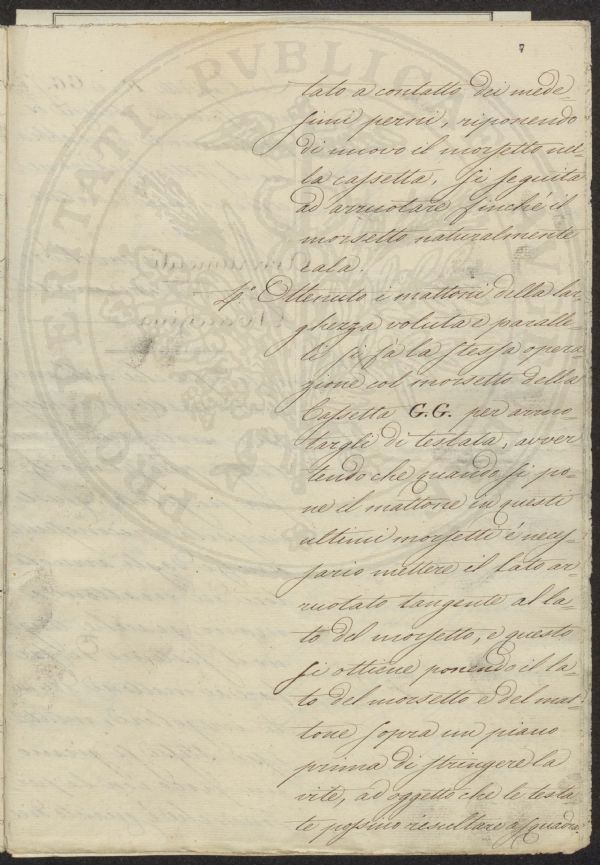 7
tato a contatto dei mede-
simi perni, riponendo
di nuovo il morsetto nel-
la cassetta, si seguita
ad arruotare finchè il
morsetto naturalmente
cala.
4.° Ottenuto i mattoni della lar-
ghezza voluta e paralle-
li si fà la stessa opera
zione col morsetto della
Cassetta G.G. per arruo-
targli di testata, avver
tendo che quando si po-
ne il mattone in questi
ultimi morsetti é neces-
sario mettere il lato ar-
ruotato tangente al la-
to del morsetto, e questo
si ottiene ponendo il la-
to del morsetto e del mat-
tone sopra un piano
prima di stringere la
vite, ad oggetto che le testa
te possino resultare a squadro.
PROSPERITATI PVBLICAE